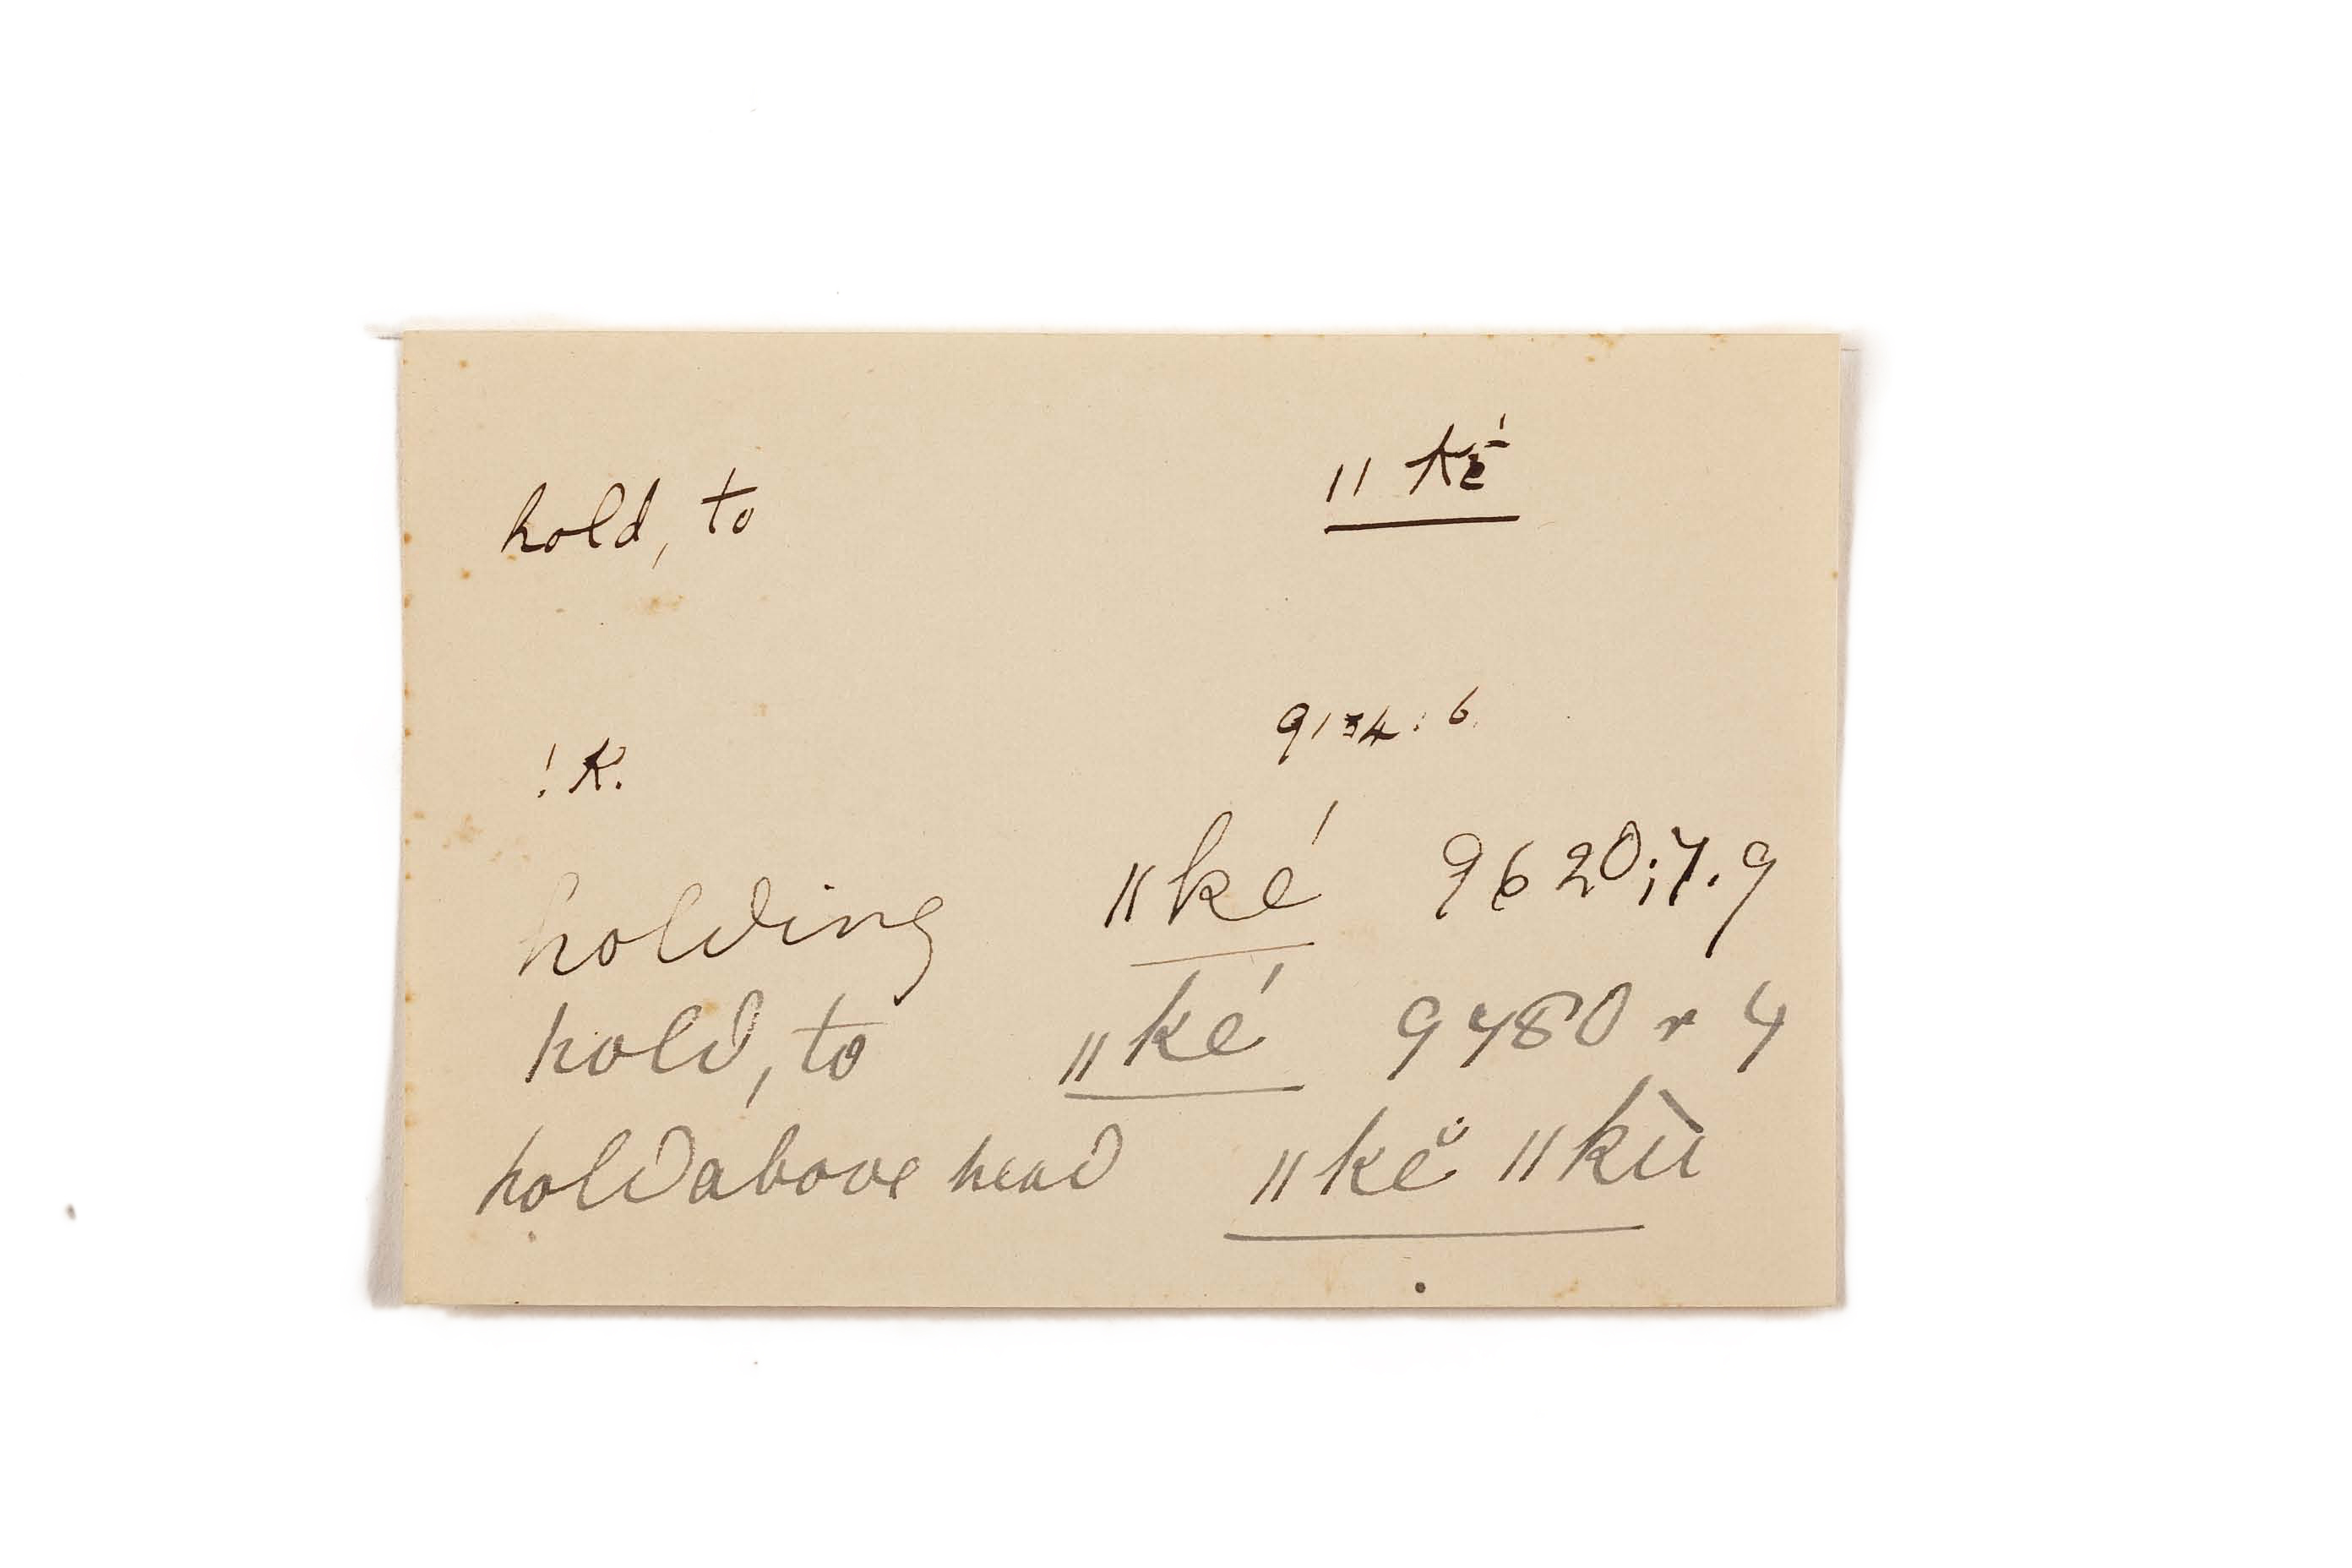 hold, to ǁké
9134:6.
!K.
holding ǁké 9620;7.9
hold, to ǁké 9480 r 4
hold above head ǁkĕ ǁkù